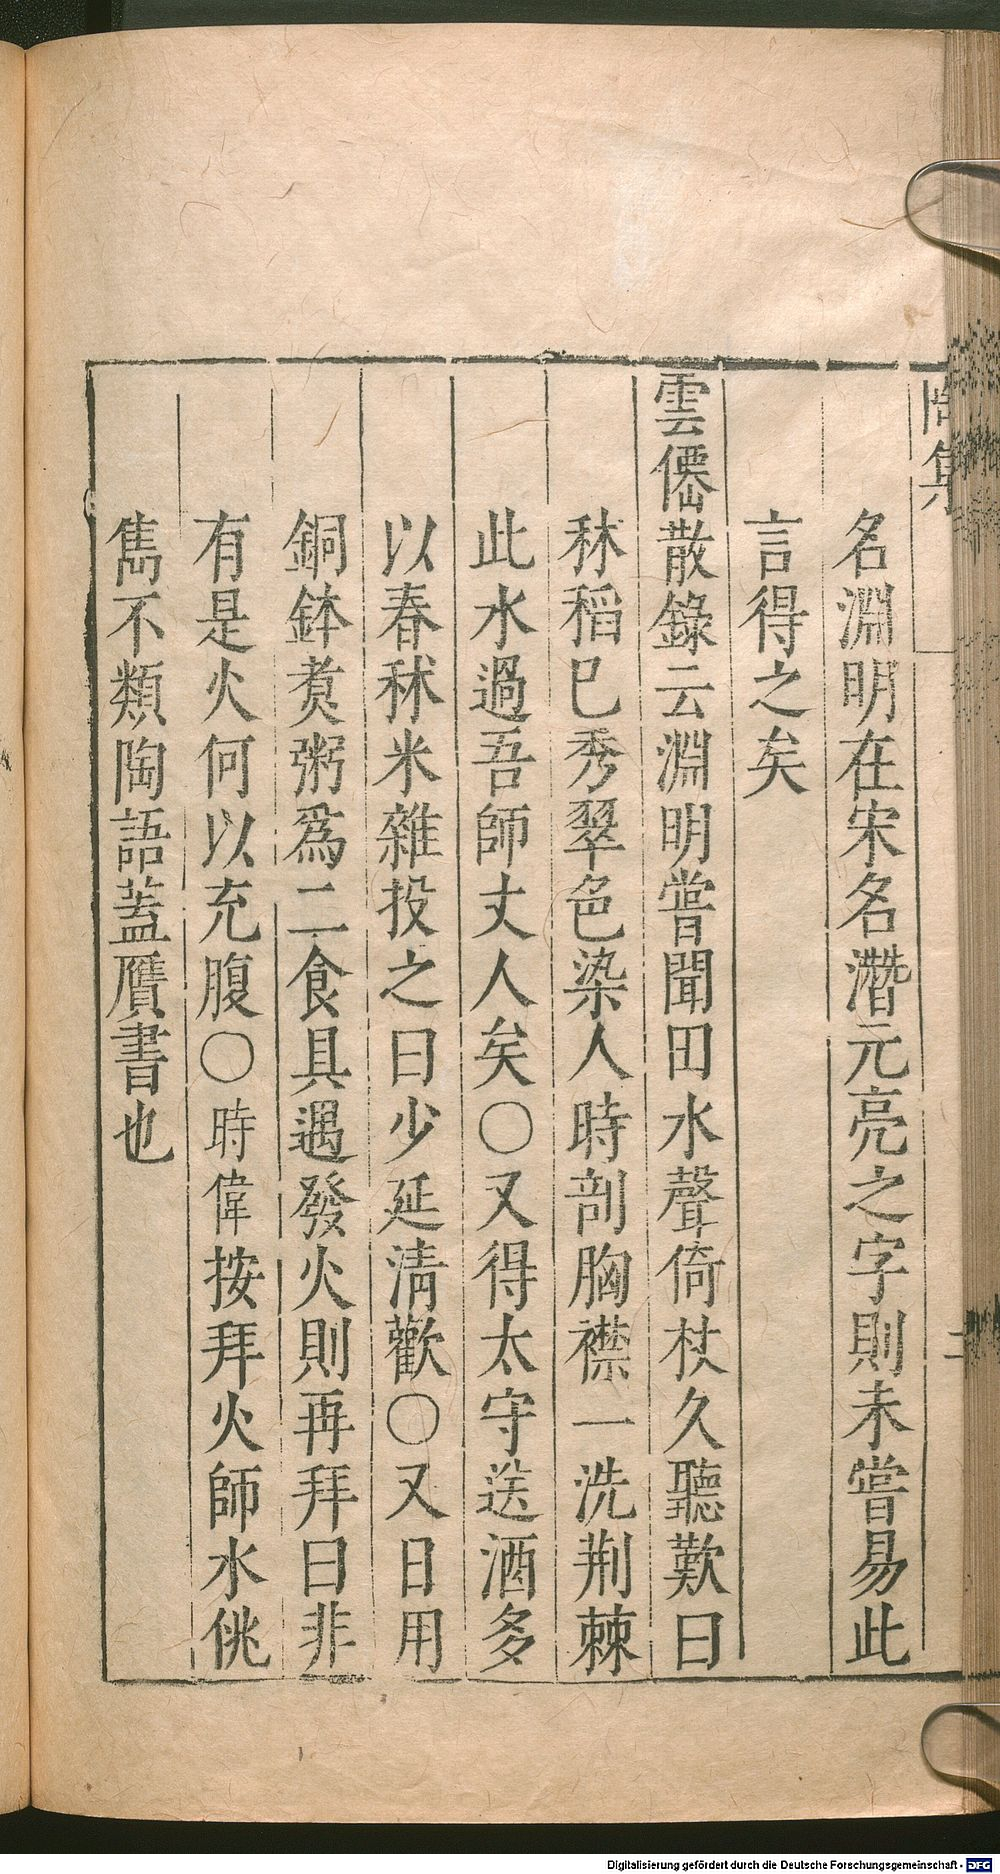 陶集
名淵明在宋名潛元亮之字則未嘗易此
言得之矣
雲僊散錄云淵明嘗聞田水聲倚杖久聽歎曰
秫稻巳秀翠色染人時剖胸襟一洗荆棘
此水過吾師丈人矣○又得太守送酒多
以春秫米雜投之曰少延淸歡○又日用
銅鉢煑粥爲二食具遇發火則再拜曰非
有是火何以充腹○時偉按拜火師水佻
雋不類陶語蓋贋書也
Digitalisierung gefördert durch die Deutsche Forschungsgemeinschaft - DFG